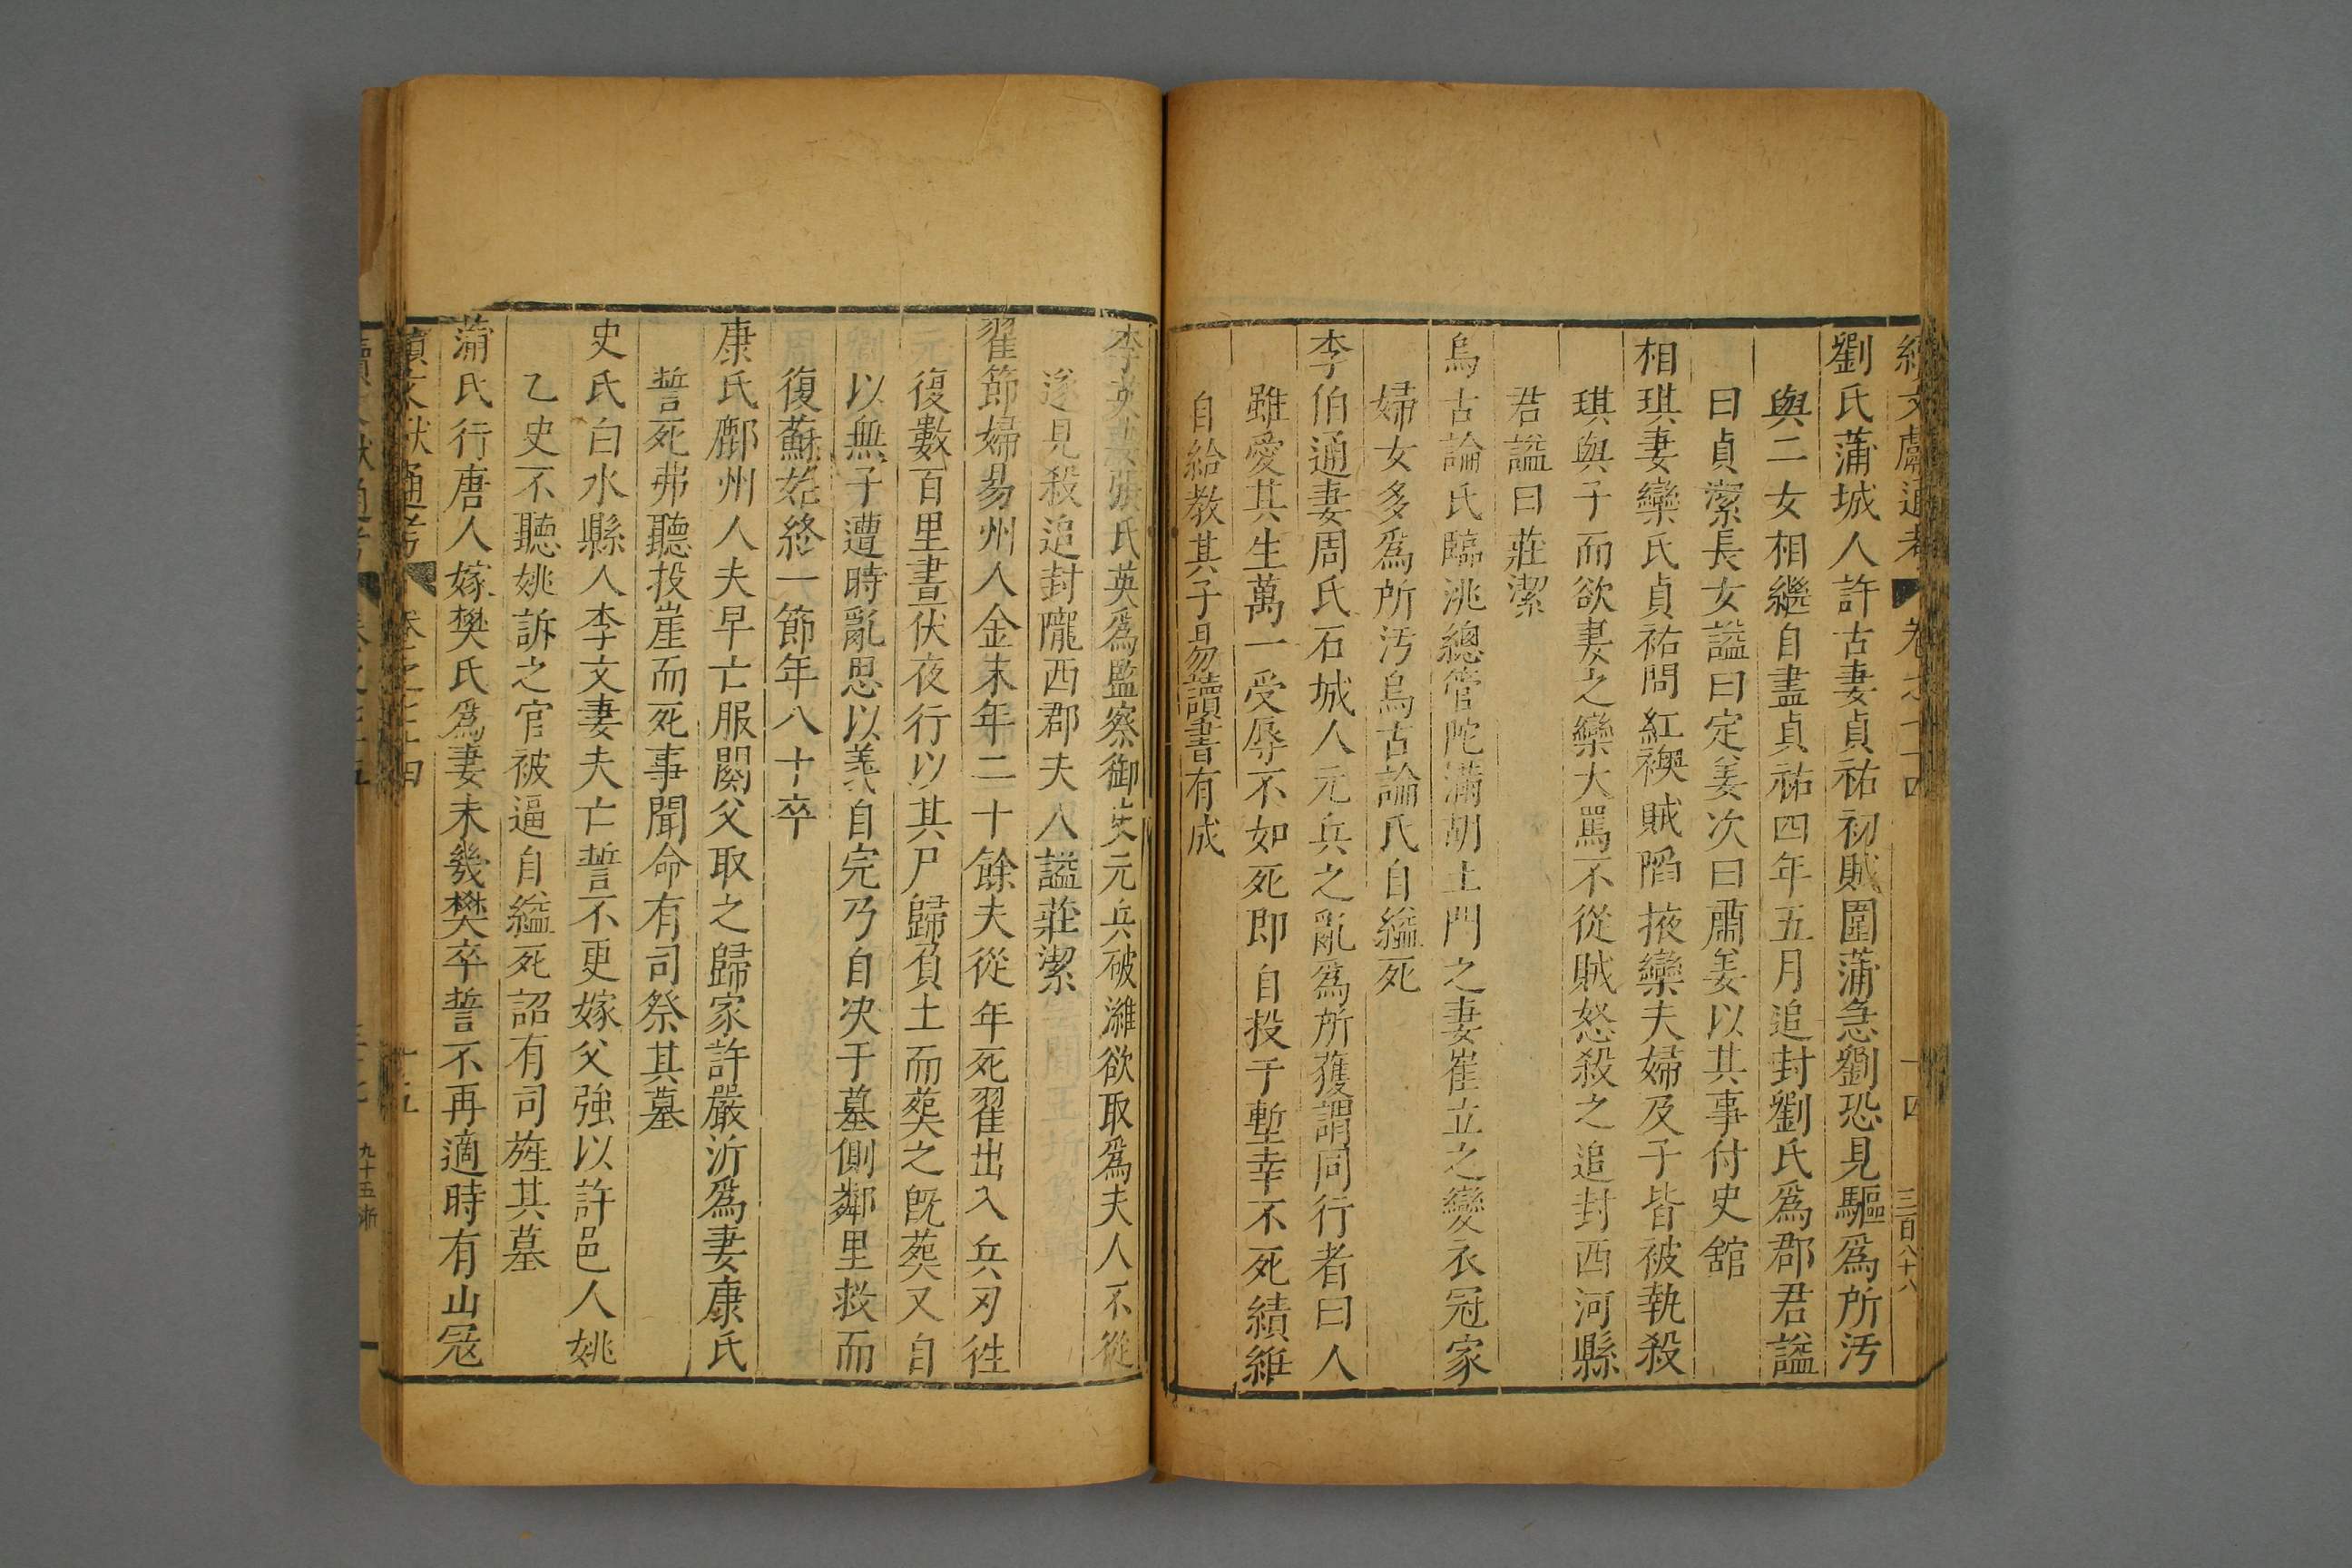 續文獻通考 卷之七十四 十四 三百八十八
劉氏蒲城人許古妻貞祐初賊圍蒲急劉恐見驅爲所汚
與二女相繼自盡貞祐四年五月追封劉氏爲郡君謚
曰貞潔長女謚曰定姜次曰肅姜以其事付史舘
相琪妻欒氏貞祐間紅襖賊陷掖欒夫婦及子皆被執殺
琪與子而欲妻之欒大罵不從賊怒殺之追封西河縣
君謚曰莊潔
烏古論氏臨洮總管陀滿胡土門之妻崔立之變衣冠家
婦女多爲所汚烏古論氏自縊死
李伯通妻周氏石城人元兵之亂爲所獲謂同行者曰人
雖愛其生萬一受辱不如死即自投于塹幸不死績維
自給教其子易讀書有成
李英妻張氏英爲監察御史元兵破濰欲取爲夫人不從
遂見殺追封隴西郡夫人謚莊潔
翟節婦易州人金末年二十餘夫從年死翟出入兵刃徃
復數百里晝伏夜行以其尸歸負土而葬之旣葬又自
以無子遭時亂思以義自完乃自决于墓側鄰里救而
復蘇始終一節年八十卒
康氏鄜州人夫早亡服闋父取之歸家許嚴沂爲妻康氏
誓死弗聽投崖而死事聞命有司祭其墓
史氏白水縣人李文妻夫亡誓不更嫁父強以許邑人姚
乙史不聽姚訴之官被逼自縊死詔有司旌其墓
蒲氏行唐人嫁樊氏爲妻未幾樊卒誓不再適時有山冦
文獻通考 卷之七十四 十五
九十五 浙